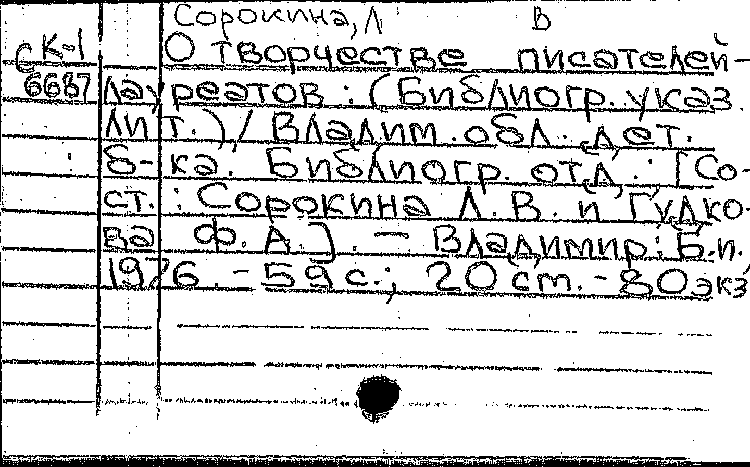 Сорокина, Л В
С К-1 О творчестве писателей-
6687 лауреатов : (Библиогр. указ.
лит.) / Владим. обл. дет.
б-ка. Библиогр. отд. : [Со-
ст. : Сорокина Л. В. и Гудко-
ва Ф. А.] . — Владимир : Б.и.
1976. - 59 с. ; 20 см. - 80 экз